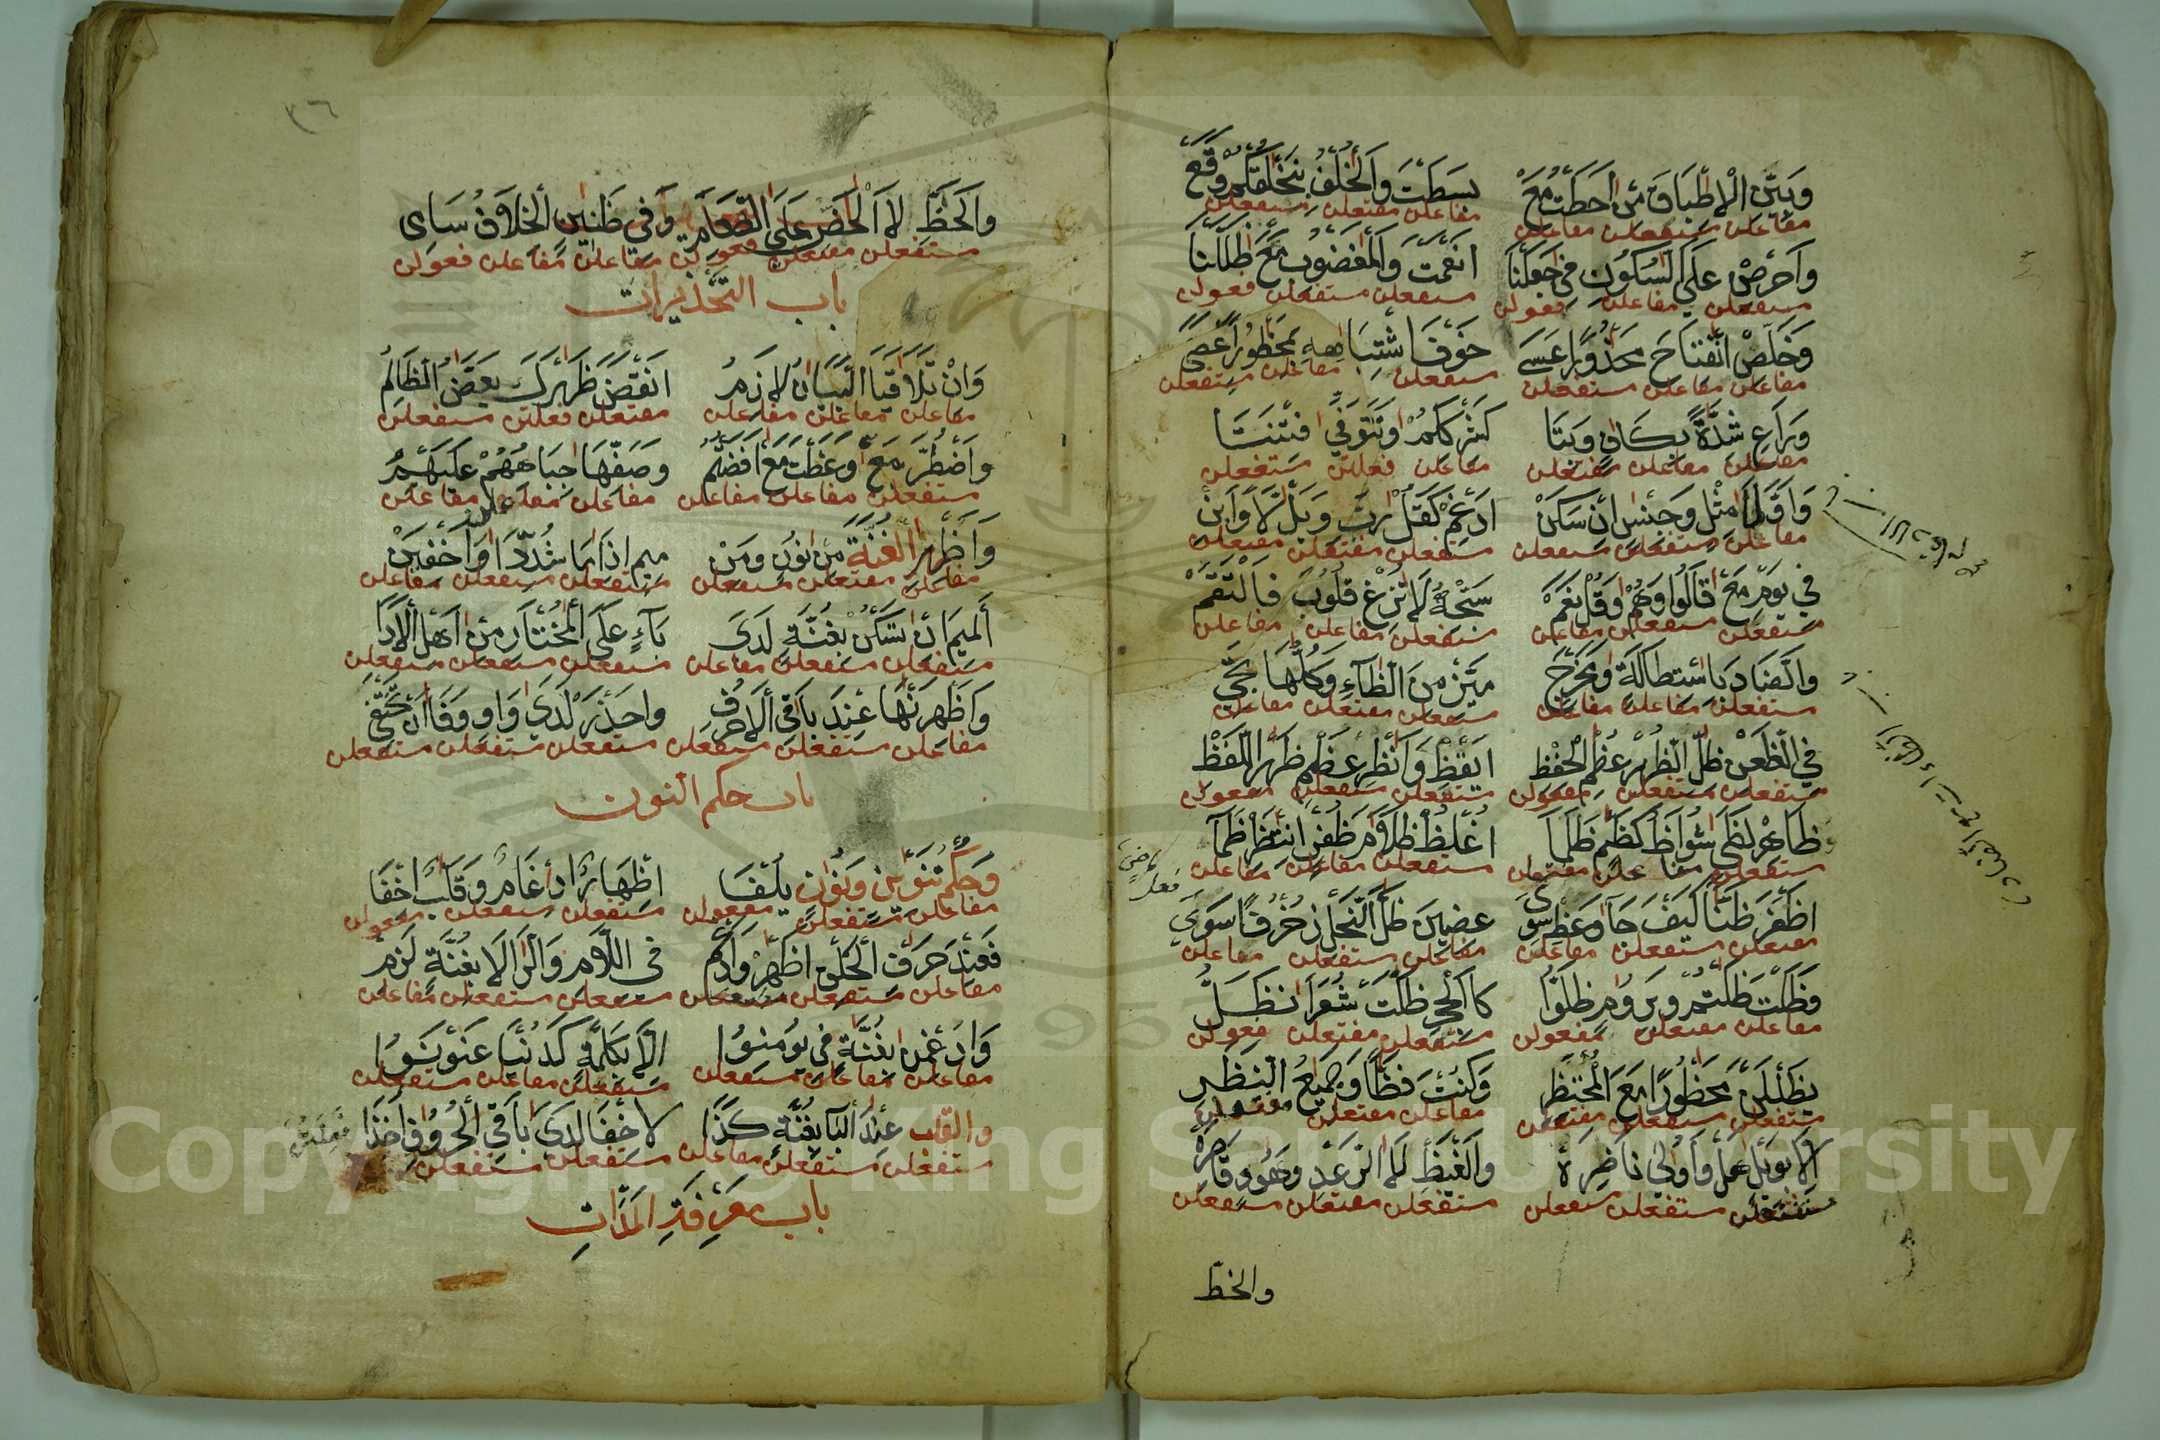 وَبَيِّنِ الْإِطْبَاقَ مِنْ أَحَطْتُ مَعْ بَسَطْتَ وَالْخُلْفُ بِنَخْلُقْكُمْ وَقَعْ
مفاعلن مستفعلن مفاعلن مفاعلن مفتعلن مستفعلن
وَاحْرِصْ عَلَى السُّكُونِ فِي جَعَلْنَا أَنْعَمْتَ وَالْمَغْضُوبِ مَعْ ظَلَلْنَا
مستفعلن مفاعلن فعولن مستفعلن مستفعلن فعولن
وَخَلِّصْ انْفِتَاحَ مَحْذُورًا عَسَى خَوْفَ اشْتِبَاهِهِ بِمَحْظُورًا عَصَى
مفاعلن مفاعلن مستفعلن مستفعلن مفاعلن مستفعلن
وَرَاعِ شِدَّةً بِكَافٍ وَبِتَا كَشِرْكِكُمْ وَتَتَوَفَّى فِتْنَتَا
مفاعلن مفاعلن مفتعلن مفاعلن فعلتن مستفعلن
وَأَوَّلَا مِثْلٍ وَجِنْسٍ إِنْ سَكَنْ أَدْغِمْ كَقُلْ رَبِّ وَبَلْ لَا وَأَبِنْ
مفاعلن مستفعلن مستفعلن مستفعلن مفتعلن مفتعلن
فِي يَوْمِ مَعْ قَالُوا وَهُمْ وَقُلْ نَعَمْ سَبِّحْهُ لَا تُزِغْ قُلُوبَ فَالْتَقَمْ
مستفعلن مستفعلن مفاعلن مستفعلن مفاعلن مفاعلن
وَالضَّادَ بِاسْتِطَالَةٍ وَمَخْرَجِ مَيِّزْ مِنَ الظَّاءِ وَكُلُّهَا تَجِي
مستفعلن مفاعلن مفاعلن مستفعلن مفتعلن مفاعلن
فِي الظَّعْنِ ظِلُّ الظُّهْرِ عُظْمُ الْحِفْظِ أَيْقِظْ وَأَنْظِرْ عَظْمَ ظَهْرِ اللَّفْظِ
مستفعلن مستفعلن مفعولن مستفعلن مستفعلن مفعولن
ظَاهِرْ لَظَى شُوَاظُ كَظْمٍ ظَلَمَا اغْلُظْ ظَلَامَ ظُفُرٍ انْتَظِرْ ظَمَا
مستفعلن مفاعلن مفتعلن مستفعلن مفاعلن مفاعلن
أَظْفَرَ ظَنًّا كَيْفَ جَا وَعَظْ سِوَى عِضِينَ ظَلَّ النَّحْلِ زُخْرُفًا سَوَى
مفتعلن مستفعلن مفاعلن مفاعلن مستفعلن مفاعلن
وَظَلْتَ ظَلْتُمْ وَبِرُومٍ ظَلُّوا كَالْحِجْرِ ظَلَّتْ شُعَرَا نَظَلُّ
مفاعلن مفتعلن مفعولن مستفعلن مفتعلن فعولن
يَظْلَلْنَ مَحْظُورًا مَعَ الْمُحْتَظِرِ وَكُنْتَ فَظًّا وَجَمِيعُ النَّظَرِ
مستفعلن مستفعلن مفتعلن مفاعلن مفتعلن مفتعلن
إِلَّا بِوَيْلٌ هَلْ وَأُولَى نَاضِرَهْ وَالْغَيْظِ لَا الرَّعْدِ وَهُودٍ قَاصِرَهْ
مستفعلن مستفعلن مستفعلن مستفعلن مفتعلن مستفعلن
والحظّ
٣٦
وَالْحَظِّ لَا الْحَضِّ عَلَى الطَّعَامِ وَفِي ظَنِينٍ الْخِلَافُ سَامِي
مستفعلن مفتعلن فعولن مفاعلن مفاعلن فعولن
باب التحذيرات
وَإِنْ تَلَاقَيَا الْبَيَانُ لَازِمُ أَنْقَضَ ظَهْرَكَ يَعَضُّ الظَّالِمُ
مفاعلن مفاعلن مفاعلن مفتعلن فعلتن مستفعلن
وَاضْطُرَّ مَعْ وَعَظْتَ مَعْ أَفَضْتُمُ وَصَفِّ هَا جِبَاهُهُمْ عَلَيْهِمُ
مستفعلن مفاعلن مفاعلن مفاعلن مفاعلن مفاعلن
وَأَظْهِرِ الْغُنَّةَ مِنْ نُونٍ وَمِنْ مِيمٍ إِذَا مَا شُدِّدَا وَأَخْفِيَنْ
مفاعلن مفتعلن مستفعلن مستفعلن مستفعلن مفاعلن
الْمِيمَ إِنْ تَسْكُنْ بِغُنَّةٍ لَدَى بَاءٍ عَلَى الْمُخْتَارِ مِنْ أَهْلِ الْأَدَا
مستفعلن مستفعلن مفاعلن مستفعلن مستفعلن مستفعلن
وَأَظْهِرَنْهَا عِنْدَ بَاقِي الْأَحْرُفِ وَاحْذَرْ لَدَى وَاوٍ وَفَا أَنْ تَخْتَفِي
مفاعلن مستفعلن مستفعلن مستفعلن مستفعلن مستفعلن
باب حكم النون
وَحُكْمُ تَنْوِينٍ وَنُونٍ يُلْفَا إِظْهَارٌ إِدْغَامٌ وَقَلْبٌ إِخْفَا
مفاعلن مستفعلن مفعولن مستفعلن مستفعلن مفعولن
فَعِنْدَ حَرْفِ الْحَلْقِ أَظْهِرْ وَادَّغِمْ فِي اللَّامِ وَالرَّا لَا بِغُنَّةٍ لَزِمْ
مفاعلن مستفعلن مستفعلن مستفعلن مستفعلن مفاعلن
وَأَدْغِمَنْ بِغُنَّةٍ فِي يُومِنُوا إِلَّا بِكِلْمَةٍ كَدُنْيَا عَنْوَنُوا
مفاعلن مفاعلن مستفعلن مستفعلن مفاعلن مستفعلن
وَالْقَلْبُ عِنْدَ الْبَا بِغُنَّةٍ كَذَا لَاخْفَا لَدَى بَاقِي الْحُرُوفِ أُخِذَا
مستفعلن مستفعلن مفاعلن مستفعلن مستفعلن
باب معرفة المدات
Copyright © King Saud University
1957